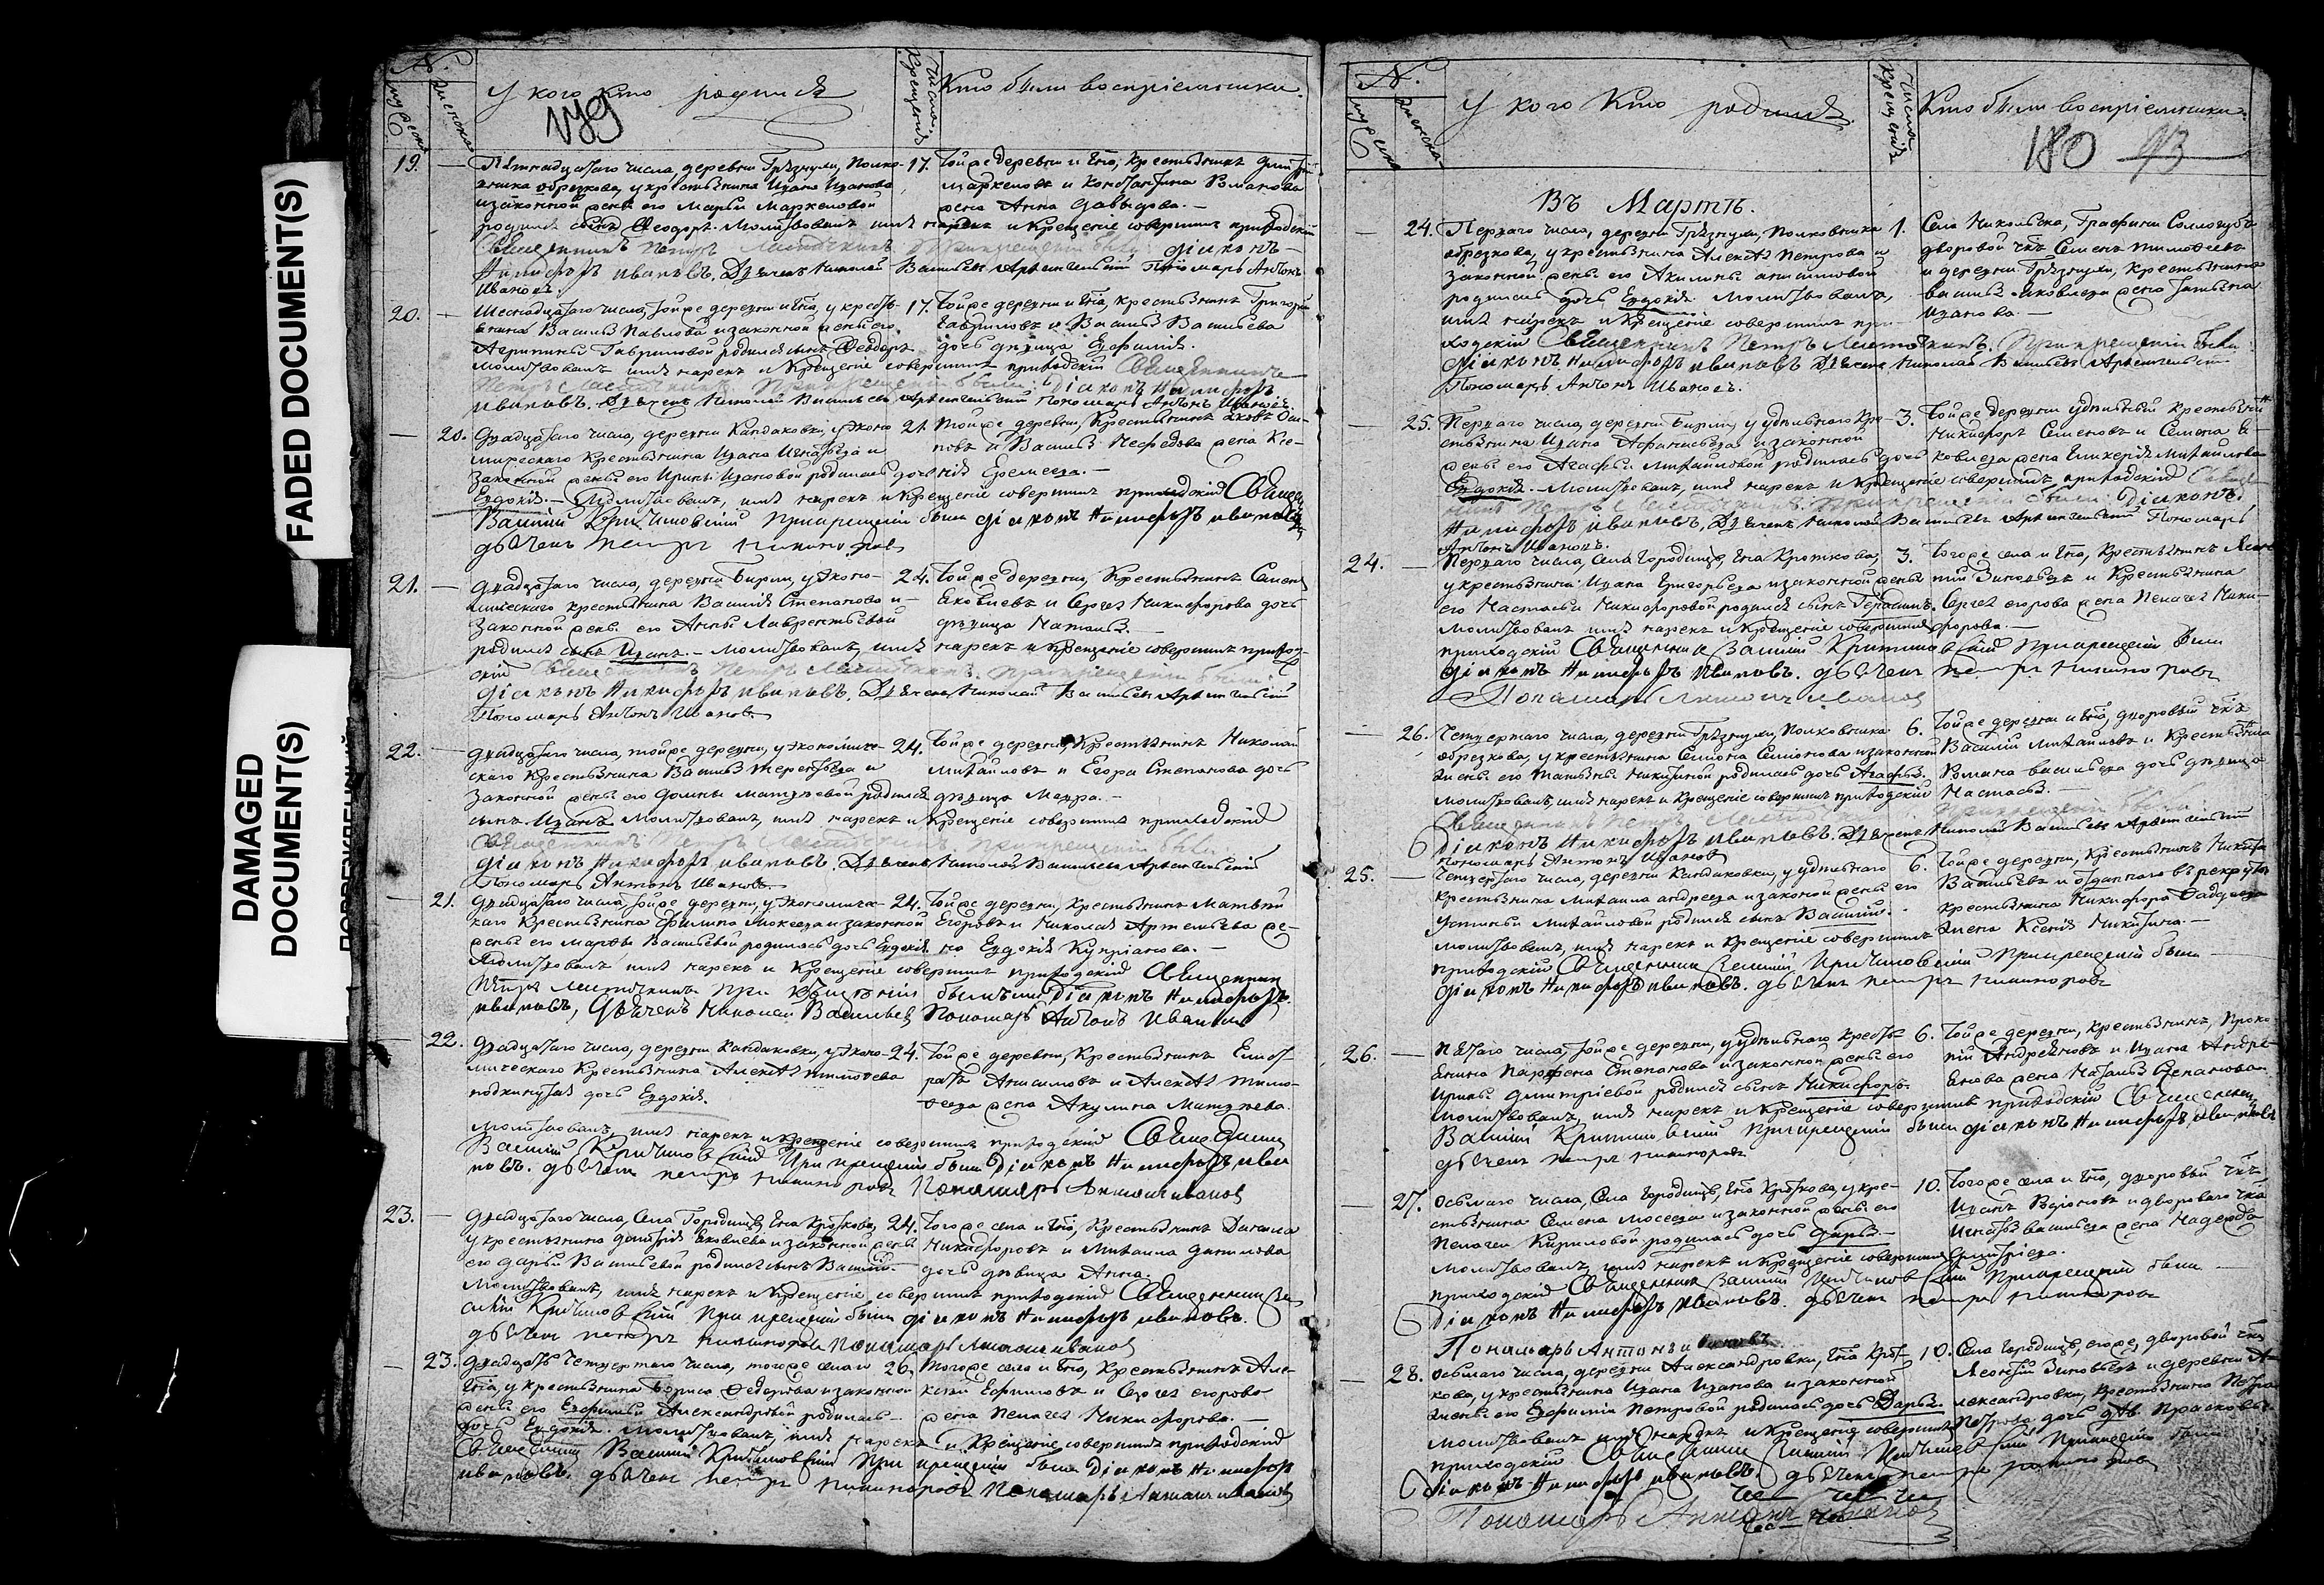 FADED DOCUMENT(S)
DAMAGED
DOCUMENT(S)
N.
У кого кто родился
Числа крещенія
Кто были воспріемники
179
19. Пятнадцатаго числа, деревни Грязнули, Полко-
вника Обрезкова, у крестьянина Ивана Иванова
и законной жены его Марьи Маркеловой
родился сынъ Ѳеодоръ. Молитвовалъ имя нарекъ и крещеніе совершилъ приходскій
Священникъ Петръ При крещеніи были діаконъ
Никифоръ Ивановъ. Дьячекъ Николай Васильевъ Архангельскій Пономарь Антонъ
Ивановъ.
17. Той же деревни и Гна, крестьянинъ Дмитрій
Маркеловъ и Константина Романова
жена Анна Давыдова.
20. Шестнадцатаго числа, той же деревни и Гна, у кресть-
янина Василья Павлова и законной жены его
Агрипины Гавриловой родился сынъ Ѳеодоръ
молитвовалъ имя нарекъ и крещеніе совершилъ приходскій Священникъ
Петръ При крещеніи были: діаконъ Никифоръ
Ивановъ. Дьячекъ Николай Васильевъ Архангельскій Пономарь Антонъ Ивановъ.
17. Той же деревни и Гна, крестьянинъ Григорій
Гавриловъ и Василья Васильева
дочь дѣвица Евфимія.
20. Двадцатаго числа, деревни Кандаковки, у эконо-
мическаго крестьянина Ивана Игнатьева и
законной жены его Ирины Ивановой родилась дочь
Евдокія. Молитвовалъ, имя нарекъ и крещеніе совершилъ приходскій Священникъ
Василій При крещеніи были діаконъ Никифоръ Ивановъ
дьячекъ петръ никаноровъ
21. Той же деревни, крестьянинъ Яковъ
и Василья Нефедова жена Ксе-
нія Еремеева.
21. Двадцатаго числа, деревни Бирли, у эконо-
мическаго крестьянина Василія Степанова и
законной жены его Анны Лаврентьевой
родился сынъ Иванъ. Молитвовалъ, имя нарекъ и крещеніе совершилъ приход-
скій Священникъ Петръ При крещеніи были
діаконъ Никифоръ Ивановъ. Дьячекъ Николай Васильевъ Архангельскій
Пономарь Антонъ Ивановъ.
24. Той же деревни, крестьянинъ Семенъ
Яковлевъ и Сергея Никифорова дочь
дѣвица Наталья.
22. Двадцатаго числа, той же деревни, у экономиче-
скаго крестьянина Василья Терентьева и
законной жены его Домны Матвѣевой родился
сынъ Иванъ. Молитвовалъ, имя нарекъ и крещеніе совершилъ приходскій
Священникъ Петръ При крещеніи были
діаконъ Никифоръ Ивановъ. Дьячекъ Николай Васильевъ Архангельскій
Пономарь Антонъ Ивановъ.
24. Той же деревни, крестьянинъ Николай
Михайловъ и Егора Степанова дочь
дѣвица Мавра.
21. Двадцатаго числа, той же деревни, у экономичес-
каго крестьянина Филипа Мокеева и законной
жены его Марфы Васильевой родилась дочь Евдокія
Молитвовалъ имя нарекъ и крещеніе совершилъ приходскій Священникъ
Петръ При крещеніи были діаконъ Никифоръ
Ивановъ, Дьячекъ Николай Васильевъ Пономарь Антонъ Ивановъ
24. Той же деревни, крестьянинъ Матвѣй
Егоровъ и Николая Артемьева же-
на Евдокія Купріанова.
22. Двадцатаго числа, деревни Кандаковки, у эконо-
мическаго крестьянина Алексѣя Тимофеева
подкинутая дочь Евдокія.
Молитвовалъ, имя нарекъ и крещеніе совершилъ приходскій Священникъ
Василій При крещеніи были діаконъ Никифоръ Ива
новъ. дьячекъ петръ никаноровъ Пономарь Антонъ Ивановъ
24. Той же деревни, крестьянинъ
Анисимовъ и Алексѣя Тимо-
феева жена Акулина Матвѣева.
23. Двадцатаго числа, села Городищъ, Гна Кроткова,
у крестьянина Яковлева и законной жены
его Дарьи Васильевой родился сынъ Василій.
Молитвовалъ, имя нарекъ и крещеніе совершилъ приходскій Священникъ Ва
силій При крещеніи были діаконъ Никифоръ Ивановъ.
дьячекъ петръ никаноровъ Пономарь Антонъ Ивановъ
24. Того же села и Гна, крестьянинъ Данила
Никифоровъ и Михаила Данилова
дочь дѣвица Анна.
23. Двадцать четвертаго числа, того же села и
Гна, у крестьянина Бориса Федорова и законной
жены его Евфимьи Александровой родилась
дочь Евдокія. Молитвовалъ, имя нарекъ и крещеніе совершилъ приходскій
Священникъ Василій При крещеніи были Діаконъ Никифоръ
Ивановъ. дьячекъ петръ никаноровъ Пономарь Антонъ Ивановъ
26. Того же села и Гна, крестьянинъ Але-
ксей Ефимовъ и Сергея Егорова
жена Пелагея Никифорова.
N.
У кого кто родился
Числа крещенія
Кто были воспріемники
180 93
Въ Мартѣ.
24. Перваго числа, деревни Грязнули, Полковника
Обрезкова, у крестьянина Алексѣя Петрова и
законной жены его Акилины Анисимовой
родилась дочь Евдокія. Молитвовалъ,
имя нарекъ и крещеніе совершилъ при-
ходскій Священникъ Петръ При крещеніи были
діаконъ Никифоръ Ивановъ Дьячекъ Николай Васильевъ Архангельскій
Пономарь Антонъ Ивановъ.
1. Села Никольска, Графини Соллогубъ
дворовой чкъ Семенъ Тимофеевъ
и деревни Грязнули, крестьянина
Василья Яковлева жена Татьяна
Иванова.
25. Перваго числа, деревни Бирли, у удѣльнаго кре-
стьянина Ивана Афанасьева и законной
жены его Агафьи Михайловой родилась дочь
Евдокія. Молитвовалъ, имя нарекъ и крещеніе совершилъ, приходскій Священ
никъ Петръ При крещеніи были: діаконъ
Никифоръ Ивановъ, Дьячекъ Николай Васильевъ Архангельскій Пономарь
Антонъ Ивановъ.
3. Той же деревни удѣльный крестьянинъ
Никифоръ Семеновъ и Семена Я-
ковлева жена Гликерія Михайлова
24. Перваго числа, села Городищъ, Гна Кроткова,
у крестьянина Ивана Григорьева и законной жены
его Настасьи Никифоровой родился сынъ Герасимъ.
Молитвовалъ имя нарекъ и крещеніе совершилъ
приходскій Священникъ Василій При крещеніи были
діаконъ Никифоръ Ивановъ. дьячекъ петръ никаноровъ
Пономарь Антонъ Ивановъ
3. Того же села и Гна, крестьянинъ Леон-
тій Зиновьевъ и крестьянина
Сергея Егорова жена Пелагея Ники-
форова.
26. Четвертаго числа, деревни Грязнули, Полковника
Обрезкова, у крестьянина Семіона Семіонова и законной
жены его Татьяны Никитиной родилась дочь Агафья.
Молитвовалъ, имя нарекъ и крещеніе совершилъ приходскій
Священникъ Петръ При крещеніи были
Діаконъ Никифоръ Ивановъ. Дьячекъ Николай Васильевъ Архангельскій
Пономарь Антонъ Ивановъ
6. Той же деревни и Гна, дворовый чкъ
Василій Михайловъ и крестьянина
Романа Васильева дочь дѣвица
Настасья.
25. Четвертаго числа, деревни Кандаковки, у удѣльнаго
крестьянина Михаила Андреева и законной жены его
Устиньи Михайловой родился сынъ Василій.
Молитвовалъ, имя нарекъ и крещеніе совершилъ
приходскій Священникъ Василій При крещеніи были
діаконъ Никифоръ Ивановъ. дьячекъ петръ никаноровъ
6. Той же деревни, крестьянинъ Никита
Васильевъ и отданнаго въ рекруты
крестьянина Никифора Фадеева
жена Ксенія Никитина.
26. Пятаго числа, той же деревни, у удѣльнаго кресть-
янина Парфена Степанова и законной жены его
Ирины Дмитріевой родился сынъ Никифоръ.
Молитвовалъ, имя нарекъ и крещеніе совершилъ приходскій Священникъ
Василій При крещеніи были діаконъ Никифоръ Ивановъ
дьячекъ петръ никаноровъ
6. Той же деревни, крестьянинъ, Проко-
пій Андреяновъ и Ивана Андре-
янова жена Наталья Степанова
27. Осьмаго числа, села Городищъ, Гна Кроткова, у кре-
стьянина Семена Мосеева и законной жены его
Пелагеи Кириловой родилась дочь Дарья.
Молитвовалъ, имя нарекъ и крещеніе совершилъ
приходскій Священникъ Василій При крещеніи были
Діаконъ Никифоръ Ивановъ. дьячекъ петръ никаноровъ
Пономарь Антонъ Ивановъ
10. Того же села и Гна, дворовый чкъ
Иванъ и двороваго чка
Игнатья Васильева жена Надежда
Дмитріева.
28. Осьмаго числа, деревни Александровки, Гна Крот-
кова, у крестьянина Ивана Иванова и законной
жены его Евфиміи Петровой родилась дочь Дарья.
Молитвовалъ имя нарекъ и крещеніе совершилъ
приходскій Священникъ Василій При крещеніи были
Діаконъ Никифоръ Ивановъ. дьячекъ петръ никаноровъ
Пономарь Антонъ Ивановъ
10. Села Городищъ, его же, дворовой чкъ
Леонтій Зиновьевъ и деревни А-
лександровки, крестьянина Петра
Петрова дочь дѣв. Прасковья